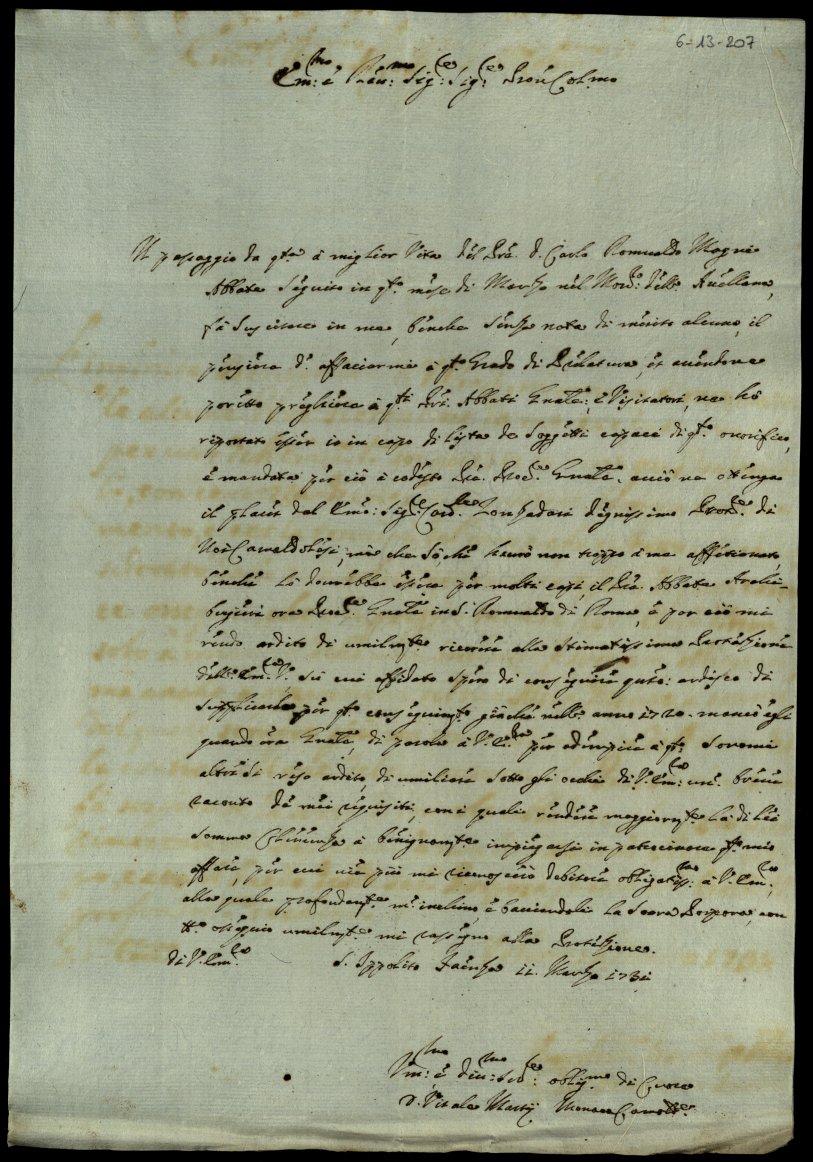 6-13-207
Em:mo è Reu:mo Sig:re Sig:re Pron Col:mo
Il passaggio da qta à miglior Vita del Pre. D. Carlo Romualdo Magni
Abbate seguito in qto. mese di Marzo nel Mon:ro dell'Auellana,
fà suscitare in me, benche senza nota di merito alcuno, il
pensiero d'affaciarmi à qto. Grado di Prelatura, et auendone
poritto preghiere à qti Pri. Abbati Gnale:, è Visitatori, ne hò
riportato esser io in capo di lista de Soggetti capaci di qto. onorifico,
è mandata per ciò à codesto Pre. Proc:re Gnale. acciò ne ottenga
il placet dal Emo: Sig:re Card:le Zondadari degnissimo Prot:re di
Noi Camaldolesi; mà che sò, che haurò non troppo à me affetionato,
benche lo dourebbe essere per molti capi, il Pre. Abbate
ora Proc:re Gnale in S. Romualdo di Roma, è per ciò mi
rendo ardito di umilmte. ricorrere alla stimatissima Protezzione
dell'Em:za V. in cui affidato spero di conseguire
supplicarla per qto. nell'anno 1720.
quando era Gnale, di parola à V. E:za per
altresi reso ardito, di umiliare sotto gli occhi di V. Em:za un breue
raconto de miei requisiti, con i quali rendere maggiormte. la di lei
somma Clemenza à benignamte impiegarsi in patrocinare qto. mio
affare, per cui uie più mi riconoscerò debitore obligatiss:mo à V. Em:za,
alla quale profondamte. m'inclino, è baciandole la Sacra Porpora, con
tto. ossequio umilmte. mi rassegno alla Protezzione.
di V. Em:za S. Ippolito Faenza 11. Marzo 1731
Um:mo è Diu:mo Ser:re oblig:mo di Cuore
D. Vitale Monaco Camald:e